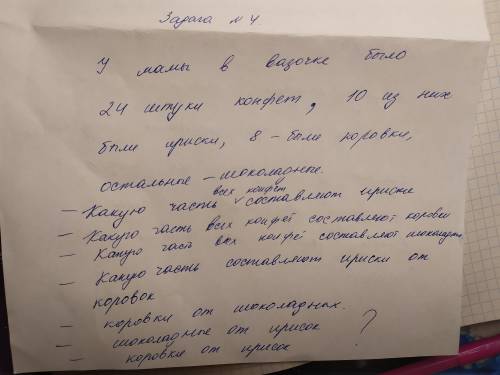 Задача №4
У мамы в вазочке было
24 штуки конфет, 10 из них
были ириски, 8 - были коровки,
остальные - шоколадные.
всех конфет
- Какую часть составляют ириски
- Какую часть всех конфет составляют коровки
- Какую часть всех конфет составляют шоколадные
- Какую часть составляют ириски от
коровок
- коровки от шоколадных.
- шоколадные от ирисок
- коровки от ирисок ?